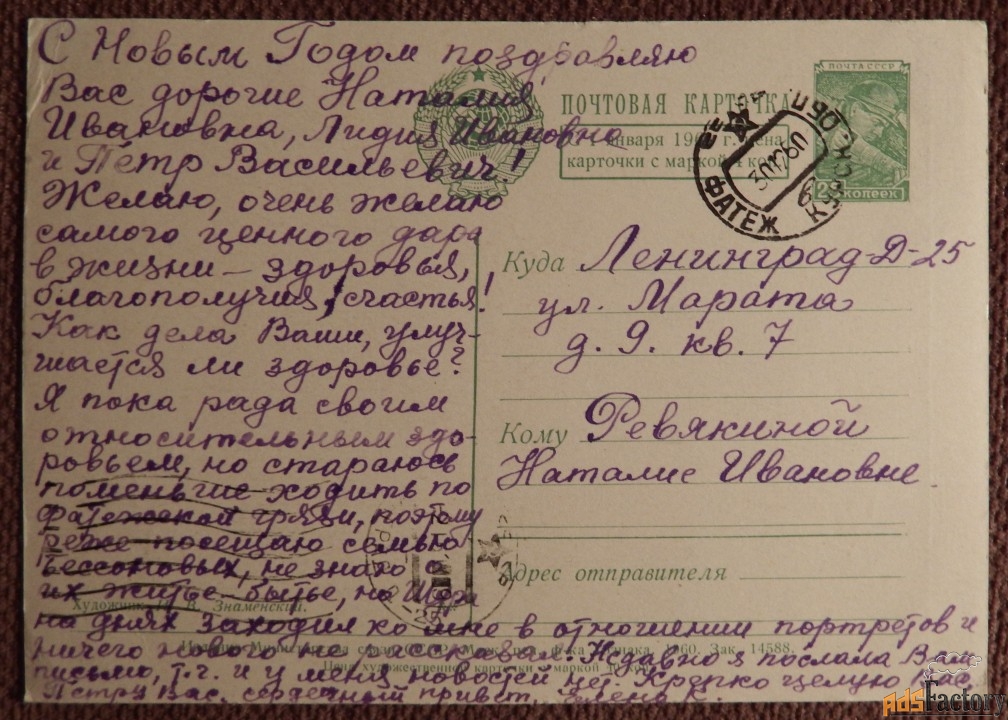 С Новым Годом поздравляю
Вас дорогие Наталия
Ивановна, Лидия Ивановна
и Пётр Васильевич!
Желаю, очень желаю
самого ценного дара
в жизни — здоровья,
благополучия, счастья!
Как дела Ваши, улуч-
шается ли здоровье?
Я пока рада своим
относительным здо-
ровьем, но стараюсь
поменьше ходить по
фатежской грязи, поэтому
реже посещаю семью
Бессоновых, не знаю о
их житье-бытье, но
на днях заходил ко мне в отношении портретов и
ничего нового не рассказал. Недавно я послала Вам
письмо, т.ч. и у меня новостей нет. Крепко целую Вас.
Петру Вас. сердечный привет. К.
ПОЧТА СССР
ПОЧТОВАЯ КАРТОЧКА
января 196 г. цена
карточки с маркой 4 коп.
25 КОПЕЕК
ФАТЕЖ
301260
Куда Ленинград-Д-25
ул. Марата
д. 9. кв. 7
Кому Ревякиной
Наталие Ивановне.
Адрес отправителя
Художник В. Знаменский.
60. Зак. 14588.
Цена художественной карточки с маркой
AdsFactory